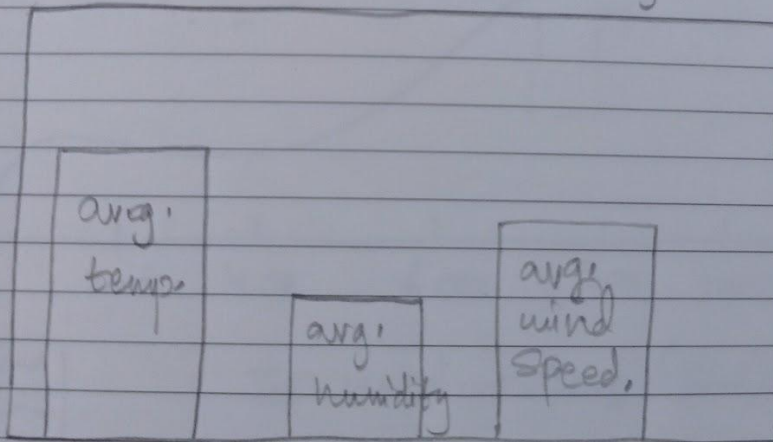 avg.
temp.
avg.
humidity
avg.
wind
speed.